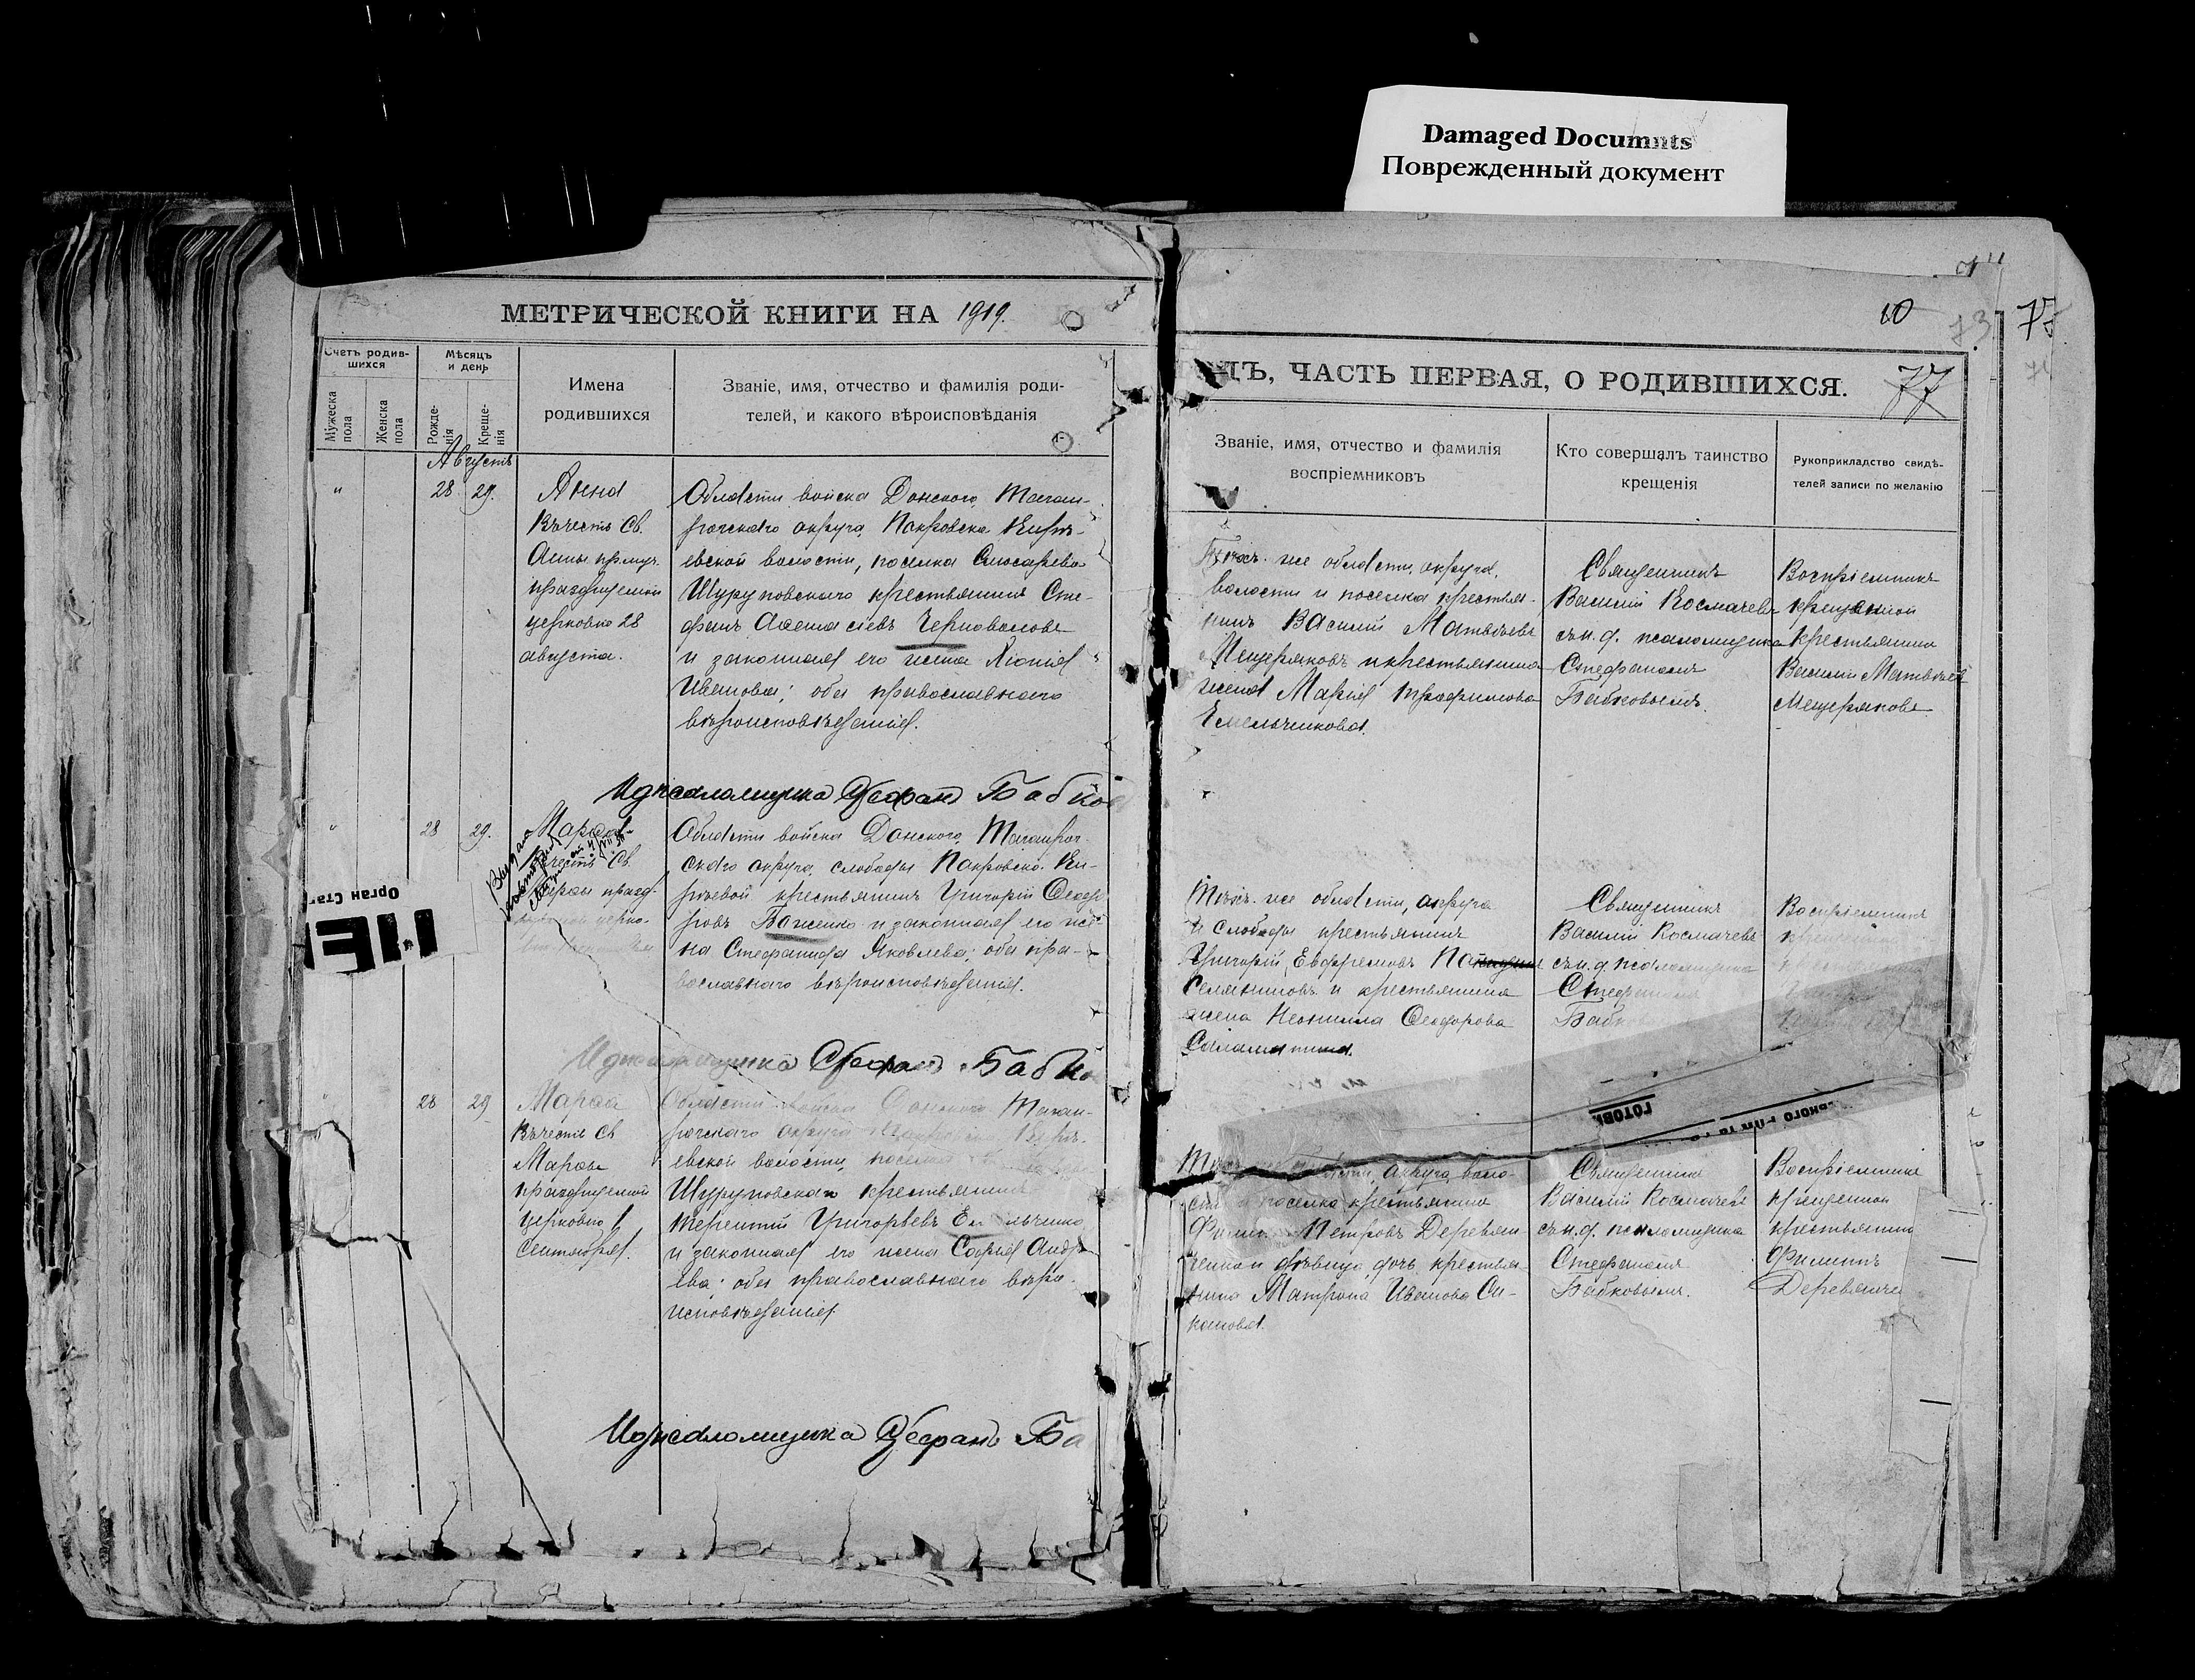 Damaged Documnts
Поврежденный документ
75
10
73
МЕТРИЧЕСКОЙ КНИГИ НА 1919.
ДЪ, ЧАСТЬ ПЕРВАЯ, О РОДИВШИХСЯ.
77
Счетъ родив-
шихся
Мужеска
пола
Женска
пола
Мѣсяцъ
и день
Рожде-
нія
Креще-
нія
Имена
родившихся
Званіе, имя, отчество и фамилія роди-
телей, и какого вѣроисповѣданія
Званіе, имя, отчество и фамилія
воспріемниковъ
Кто совершалъ таинство
крещенія
Рукоприкладство свидѣ-
телей записи по желанію
Августъ
"
28 29.
Анна
Въ честь Св.
Анны
празднуемой
церковію 28
августа.
Области войска Донского, Таган-
рогскаго округа, Покровско Кирѣ-
евской волости, поселка Слюсарево
Шуруповскаго крестьянинъ Сте-
фанъ Аѳанасіевъ Черноволовъ
и законная его жена Хіонія
Иванова; оба православнаго
вѣроисповѣданія.
Тѣхъ же области, округа,
волости и поселка крестья-
нинъ Василій Матвѣевъ
Мещеряковъ и крестьянина
жена Марія Трофимова
Емельчикова.
Священникъ
Василій Космачевъ
съ и. д. псаломщика
Стефаномъ
Бабковымъ.
Воспріемникъ
крещенной
крестьянинъ
Василій Матвѣевъ
Мещеряковъ
И д псаломщика Стефанъ Бабков
"
28 29.
Св.
празд-
Области войска Донского, Таганрог-
скаго округа, слободы Покровско-Ки-
рѣевой крестьянинъ Григорій Ѳеодо
ровъ Баженко и законная его же-
на Стефанида Яковлева; оба пра-
вославнаго вѣроисповѣданія.
Тѣхъ же области, округа
и слободы крестьянинъ
Григорій Евфремовъ
Селяниновъ и крестьянина
жена Неонилла Ѳеодорова
Священникъ
Василій Космачевъ
съ и. д. псаломщика
Стефаномъ
Бабков
Воспріемникъ
Орган Стат
И д псаломщика Стефанъ Бабко
28 29
Въ честь Св
Марѳы
празднуемой
церковію 1
Сентября.
Области войска Донского Таган-
рогскаго округа Покровско Кирѣ-
евской волости, поселка
Шуруповскаго крестьянинъ
Терентій Григорьевъ Емельченко
и законная его жена Софія Андре
ева; оба православнаго вѣро-
исповѣданія
области, округа, воло-
сти и поселка крестьянинъ
Филиппъ Петровъ Деревян
ченко и дѣвица, дочь крестья-
нина Матрона Иванова Си-
Священникъ
Василій Космачевъ
съ и. д. псаломщика
Стефаномъ
Бабковымъ.
Воспріемникъ
крещенной
крестьянинъ
Филиппъ
Деревянче
ГОТОВ
И д псаломщика Стефанъ Ба